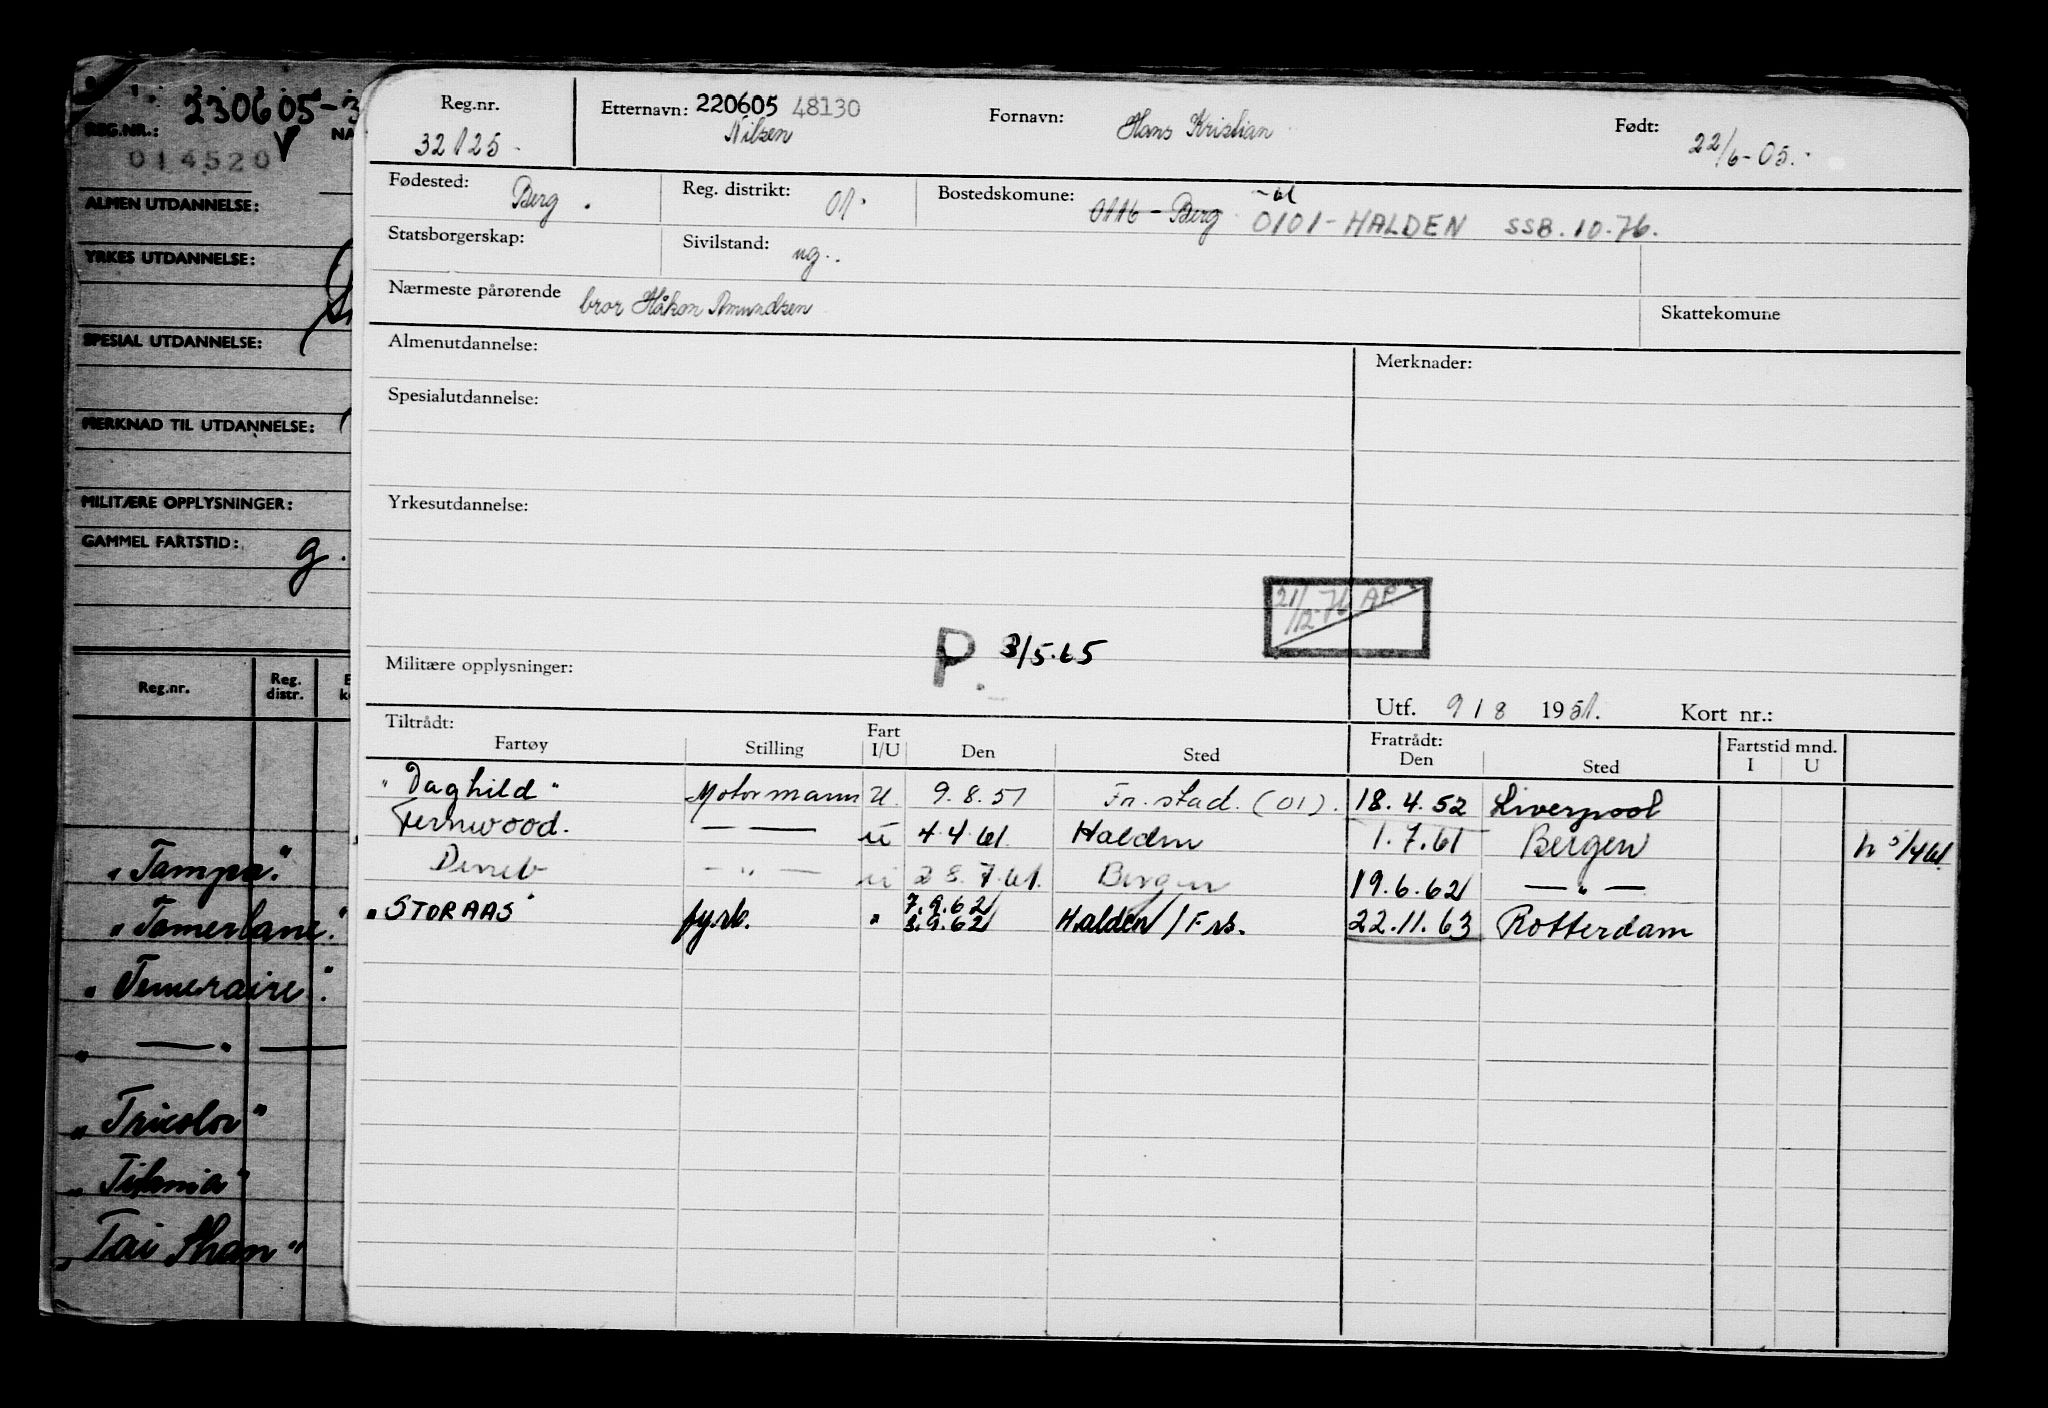 230605-3
REG.NR.:
NA
014520
ALMEN UTDANNELSE:
YRKES UTDANNELSE:
SPESIAL UTDANNELSE:
MERKNAD TIL UTDANNELSE:
MILITÆRE OPPLYSNINGER:
GAMMEL FARTSTID: g.
Reg.nr. Reg. distr.
"Tampa."
"Tamerlane."
"Temeraire".
" — " —
"Tricolor"
"Titania"
"Tai Shan"
Reg.nr. Etternavn: 220605 48130 Fornavn: Hans Kristian Født: 22/6-05.
32125. Nilsen
Fødested: Berg. Reg. distrikt: 01. Bostedskomune: 0116 - Berg 0101-HALDEN SSB.10.76.
Statsborgerskap: Sivilstand: ug.
Nærmeste pårørende bror Håkon Amundsen Skattekomune
Almenutdannelse: Merknader:
Spesialutdannelse:
Yrkesutdannelse:
21/12-76 AP
P. 3/5.65
Militære opplysninger:
Utf. 9 / 8 1951. Kort nr.:
Tiltrådt: Fart Fratrådt: Fartstid mnd.
Fartøy Stilling I/U Den Sted Den Sted I U
"Daghild" Motormann U. 9.8.51 Fr.stad. (01). 18.4.52 Liverpool
Fernwood. — — u 4.4.61. Halden 1.7.61 Bergen h 5/461
— " — u 28.7.61. Bergen 19.6.62 — " —
7.9.62
"STORAAS" fyrb. " 8.9.62 Halden / Frs. 22.11.63 Rotterdam